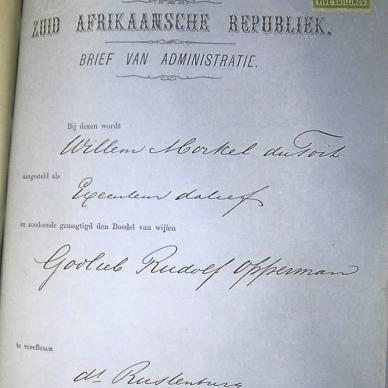 FIVE SHILLINGS
ZUID AFRIKAANSCHE REPUBLIEK.
BRIEF VAN ADMINISTRATIE.
Bij dezen wordt
Willem Morkel du Toit
aangesteld als
Executeur datief
en zoodoende gemagtigd den Boedel van wijlen
Godlieb Rudolf Opperman
te vereffenen
dt Rustenburg